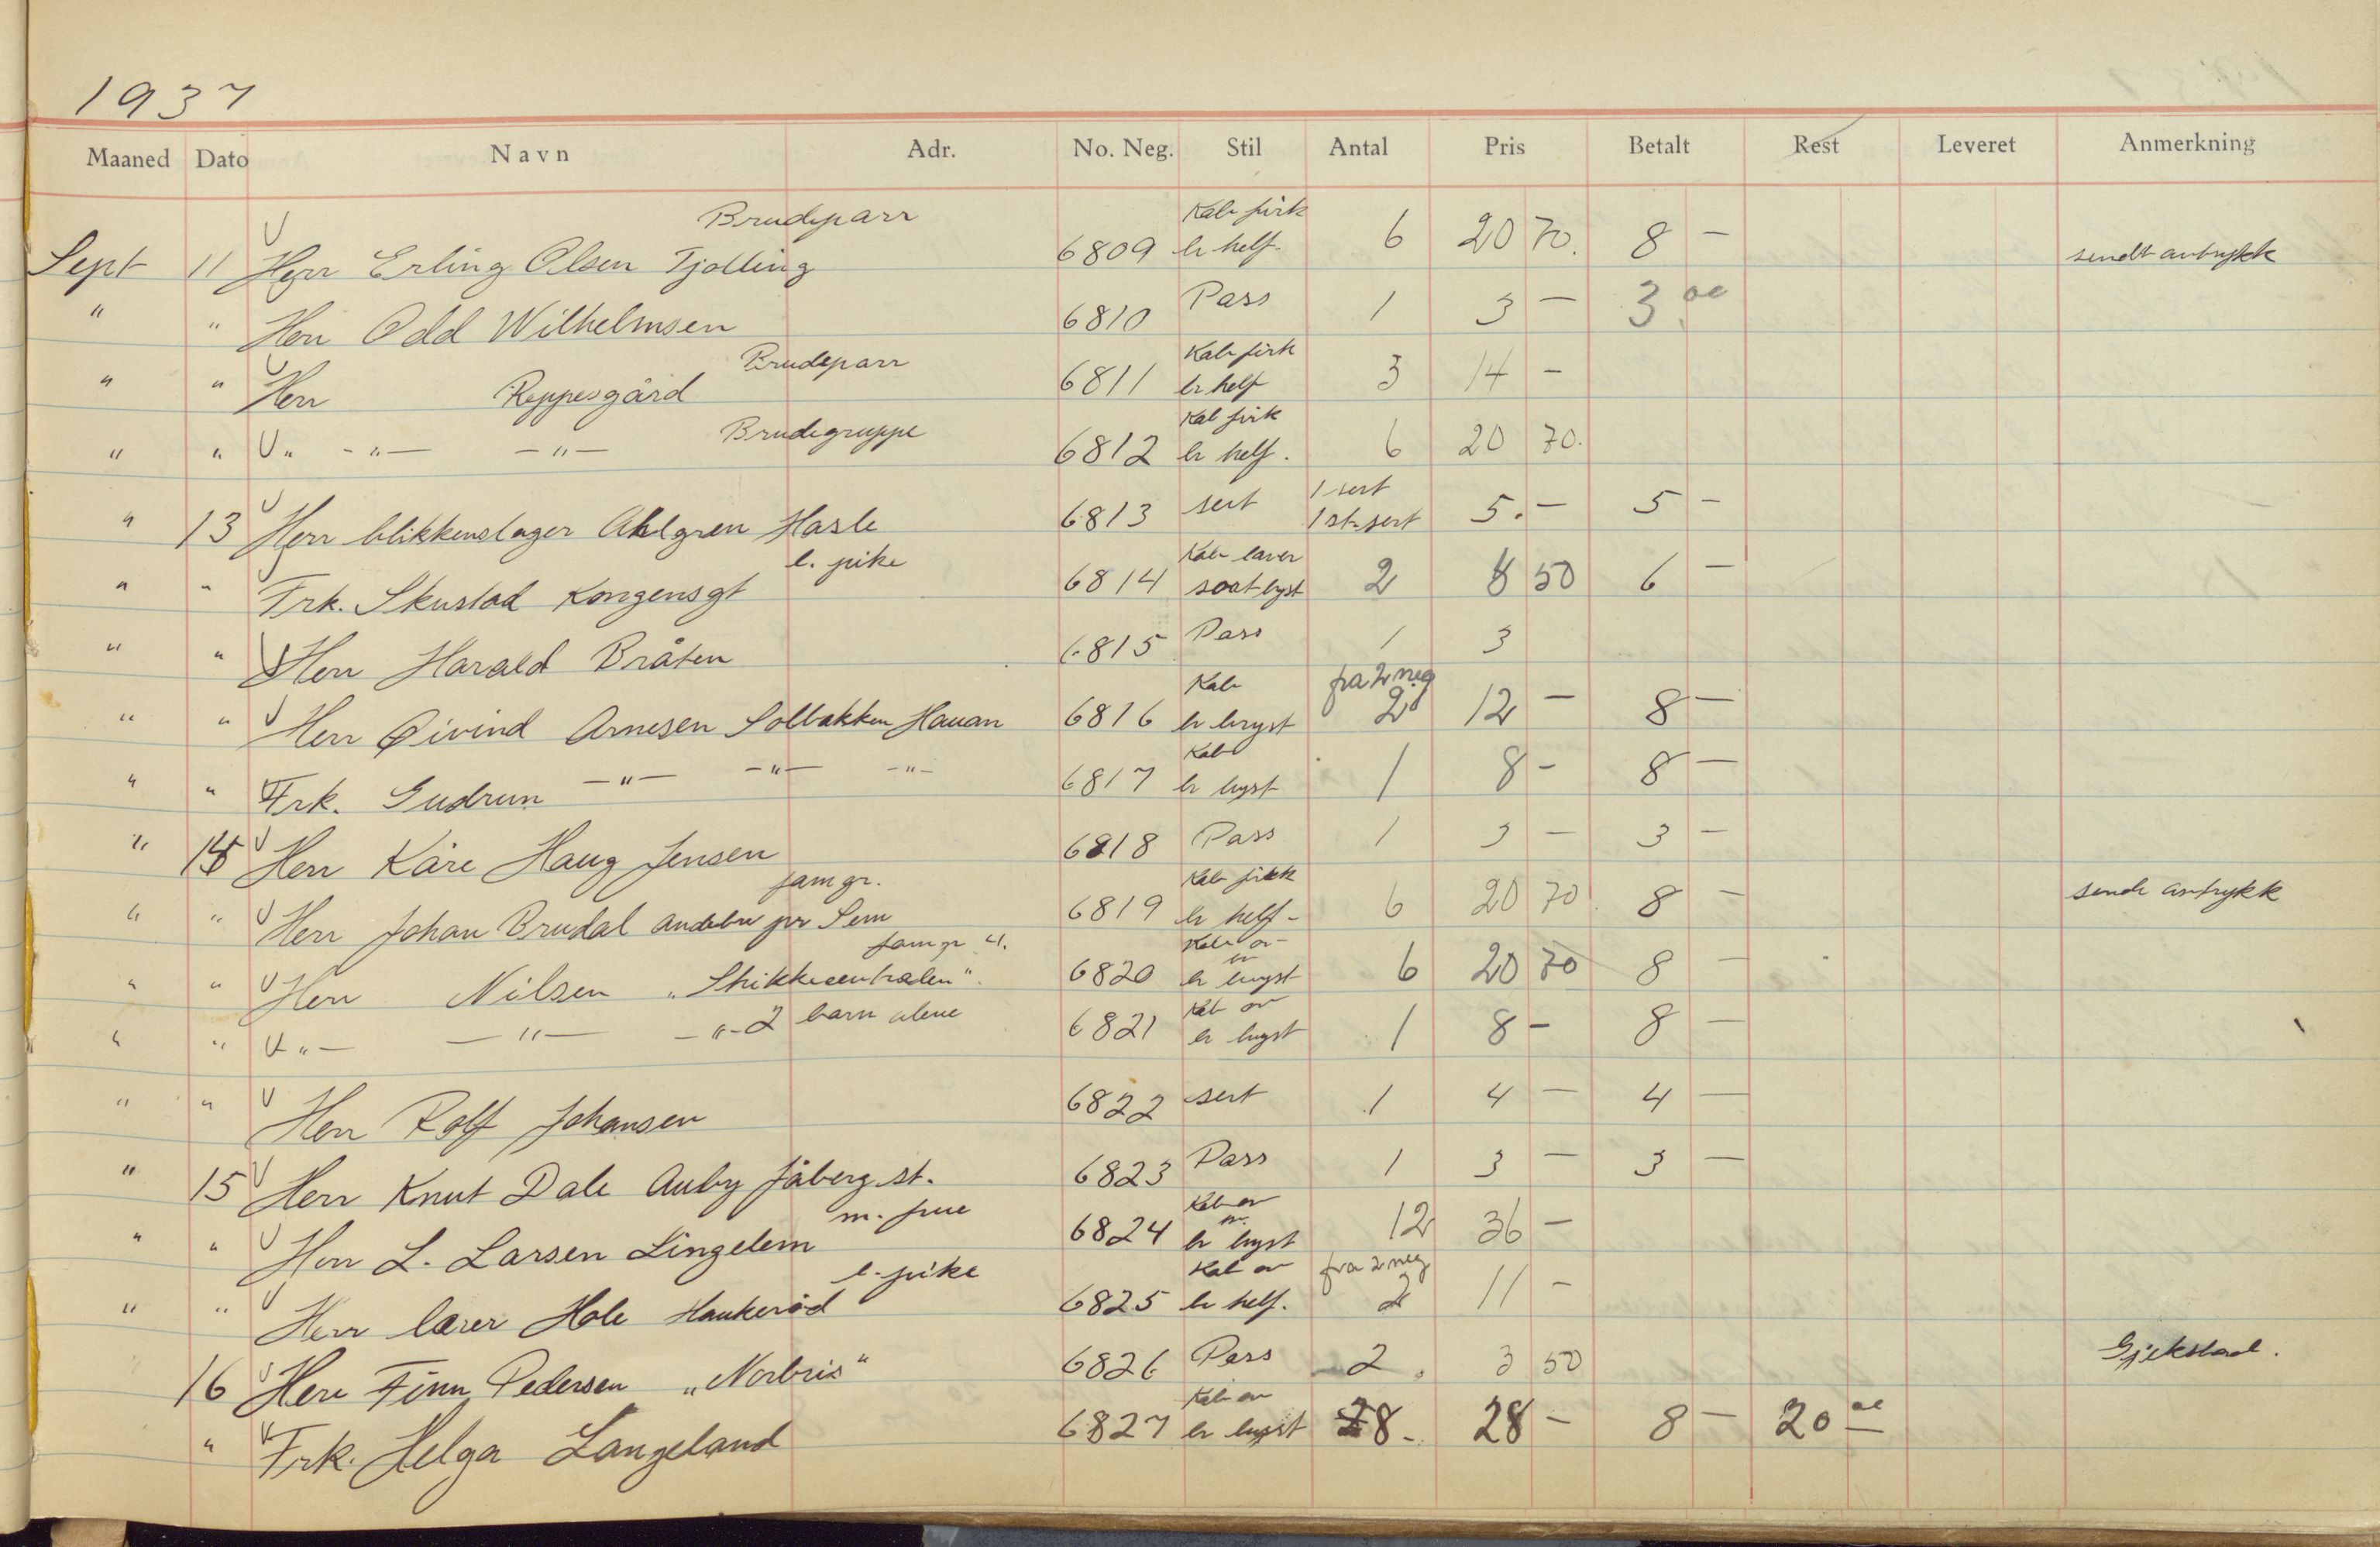 1937
Maaned Dato Navn Adr. No. Neg. Stil Antal Pris Betalt Rest Leveret Anmerkning
Brudeparr Kab firk
Sept 11 Herr Erling Olsen Tjølling 6809 br helf. 6 20 70. 8 – sendt avtrykk
" " Herr Odd Wilhelmsen 6810 Pass 1 3 – 3.00
Brudeparr Kab firk
" " Herr Reppesgård 6811 br helf 3 14 –
Brudegruppe Kab firk
" " " -"- -"- 6812 br helf. 6 20 70.
1 sert
" 13 Herr blikkenslager Ahlgren Hasle 6813 sert 1 st. sert 5.– 5 –
l. pike Kab
" " Frk. Skustad Kongensgt 6814 2 8 50 6 –
" " Herr Harald Bråten 6815 Pass 1 3
Kab fra 2 neg
" " Herr Øivind Arnesen Solbakken Hauan 6816 br bryst 2 12 – 8 –
Kab
" " Frk. Gudrun -"- -"- -"- 6817 br bryst 1 8 – 8 –
" Herr Kåre Haug Jensen 6818 Pass 1 3 – 3 –
fam gr. Kab firkk
" " Herr Johan Brudal Andebu pr Sem 6819 br helf- 6 20 70 8 – sende avtrykk
fam gr 4. Kab ov
" " Herr Nilsen "Strikkesentralen" 6820 br bryst 6 20 70 8 –
Kab ov
" " " -"- -"- 2 barn alene 6821 br bryst 1 8 – 8 –
" " Herr Rolf Johansen 6822 sert 1 4 – 4 –
" 15 Herr Knut Dale Auby Jåberg st. 6823 Pass 1 3 – 3 –
m. frue Kab ov
" " Herr L. Larsen Lingelem 6824 br bryst 12 36 –
l. pike Kab ov fra 2 neg
" " Herr lærer Hole Haukerød 6825 br helf. 2 11 –
16 Herr Finn Pedersen "Norbris" 6826 Pass 2 3 50 Gjekstad.
Kab ov
" Frk. Helga Langeland 6827 br bryst 8. 28 – 8 – 20 00